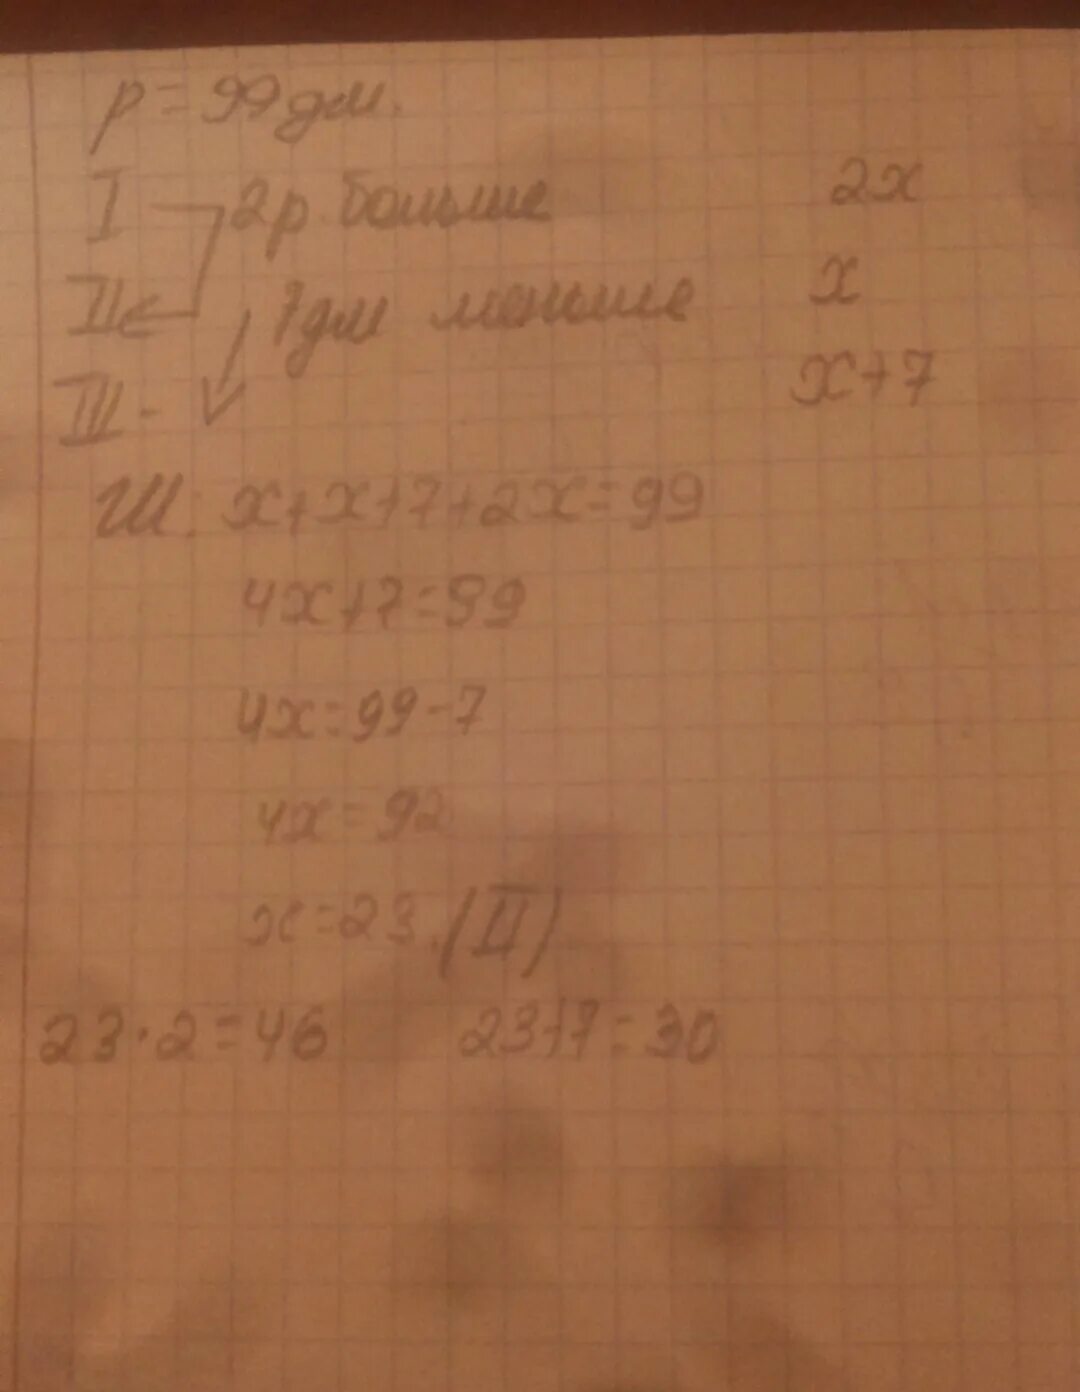 p=99дм.
I 2р больше 2x
II 7дм меньше x
III - x+7
x+x+7+2x=99
4x+7=99
4x=99-7
4x=92
x=23. (II)
23·2=46 23+7=30